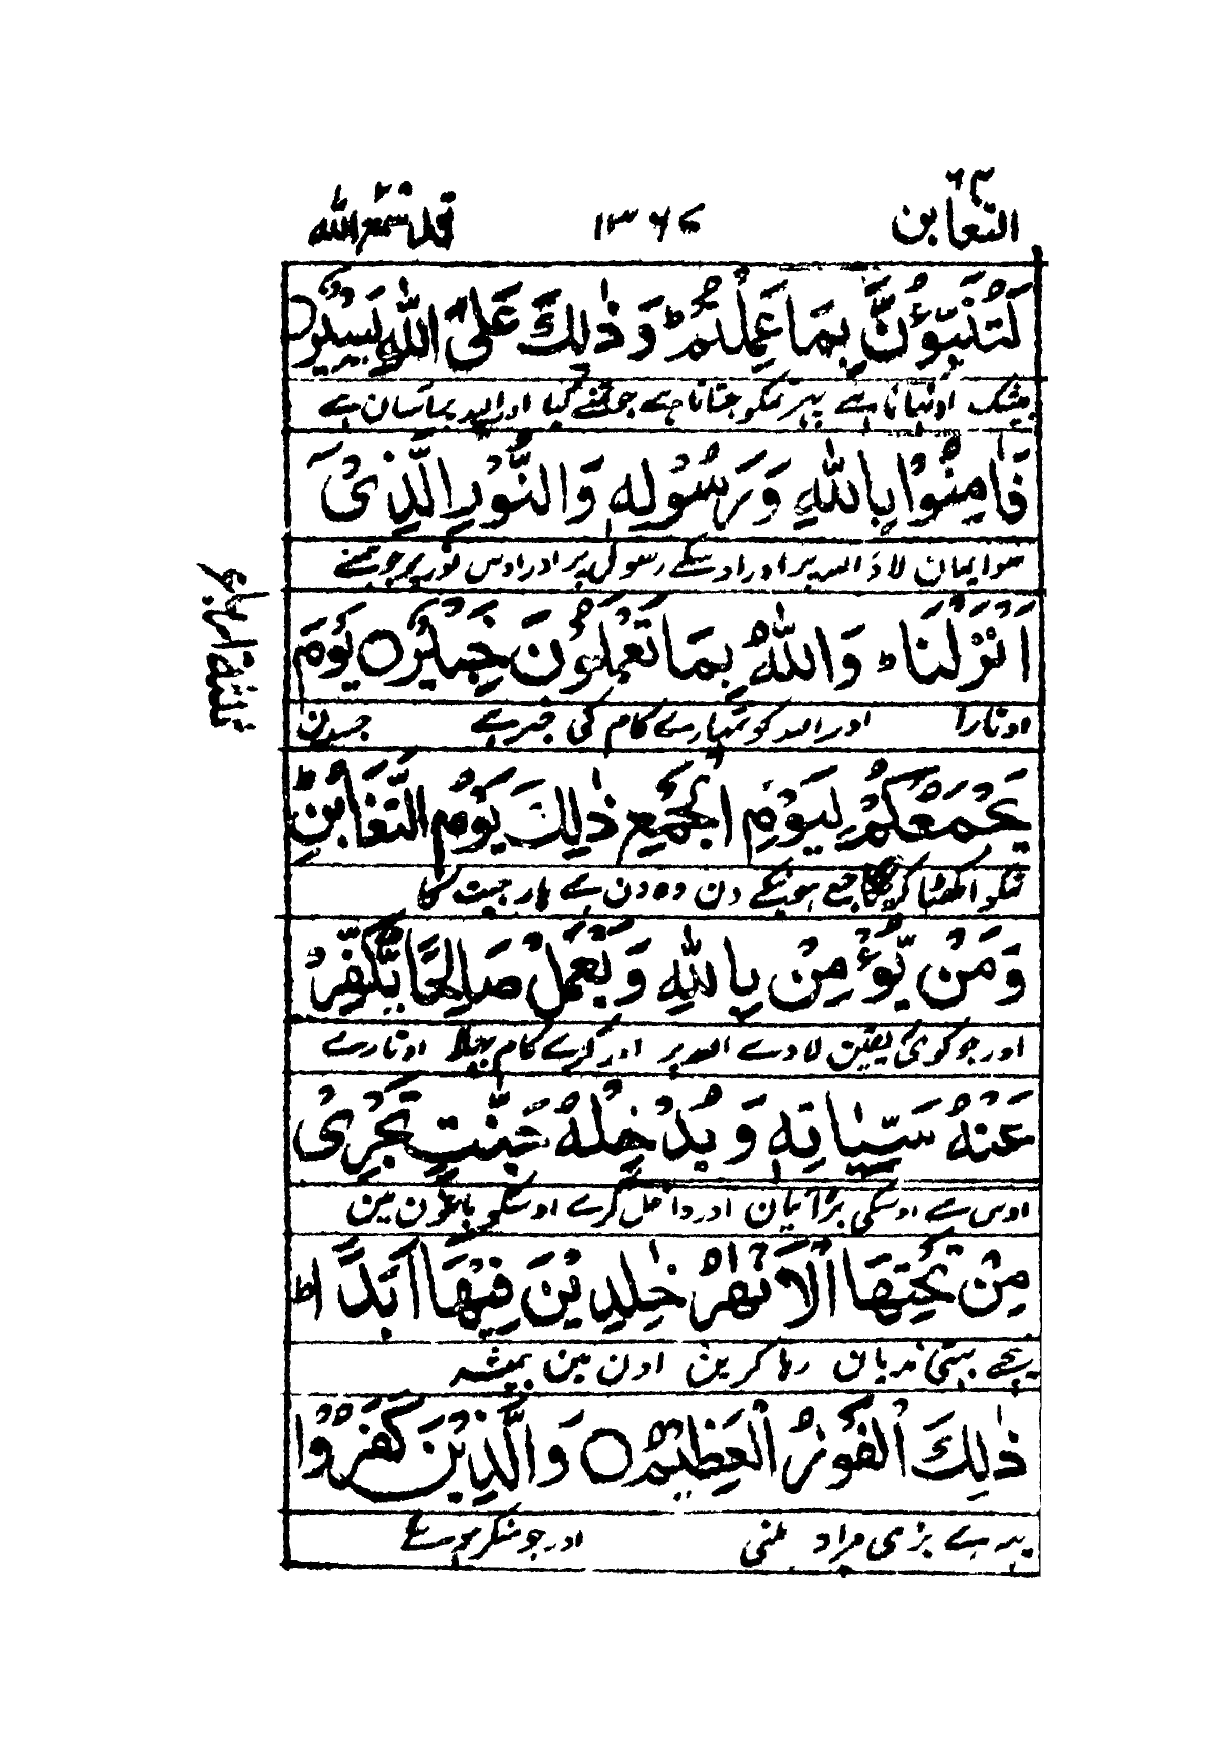 التغابن ٦٤
١٣٦٧
قد سمع الله ٢٨
لَتُنَبَّؤُنَّ بِمَا عَمِلْتُمْ ؕ وَ ذٰلِكَ عَلَى اللّٰهِ يَسِیْرٌ ○
بیشک اوٹھانا ہے پہر تمکو جتانا ہے جو تمنے کیا اور اللہ پر آسان ہے
فَاٰمِنُوْا بِاللّٰهِ وَ رَسُوْلِهٖ وَ النُّوْرِ الَّذِیْۤ
سو ایمان لاؤ اللہ پر اور اوسکے رسول پر اور اوس نور پر جو ہمنے
اَنْزَلْنَا ؕ وَ اللّٰهُ بِمَا تَعْمَلُوْنَ خَبِیْرٌ ○ یَوْمَ
اوتارا اور اللہ کو تمہارے کام کی خبر ہے جسدن
یَجْمَعُكُمْ لِیَوْمِ الْجَمْعِ ذٰلِكَ یَوْمُ التَّغَابُنِ ؕ
تمکو اکٹھا کریگا جمع ہونیکے دن وہ دن ہے ہار جیت کا
وَ مَنْ یُّؤْمِنْ بِاللّٰهِ وَ یَعْمَلْ صَالِحًا یُّكَفِّرْ
اور جو کوئی یقین لاوے اللہ پر اور کرے کام بہلا اوتارے
عَنْهُ سَیِّاٰتِهٖ وَ یُدْخِلْهُ جَنّٰتٍ تَجْرِیْ
اوس سے اوسکی برائیان اور داخل کرے اوسکو باغون مین
مِنْ تَحْتِهَا الْاَنْهٰرُ خٰلِدِیْنَ فِیْهَاۤ اَبَدًا ؕ
نیچے بہتی ندیان رہا کرین اون مین ہمیشہ
ذٰلِكَ الْفَوْزُ الْعَظِیْمُ ○ وَ الَّذِیْنَ كَفَرُوْا
یہ ہے بڑی مراد ملنی اور جو منکر ہوئے